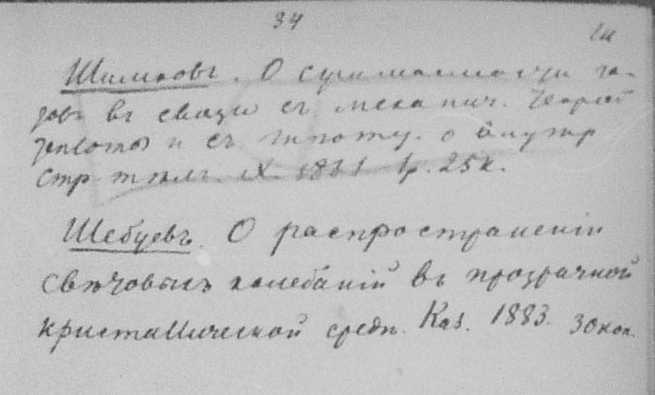 34
Ш
Шимковъ. О сжимаемости га-
зовъ въ связи съ механич. теоріей
теплоты и съ о внутр
стр тѣлъ. Х. 1р. 25к.
Шебуевъ. О распространеніи
свѣтовыхъ колебаній въ прозрачной
кристаллической средѣ. Каз. 1883. 30 коп.